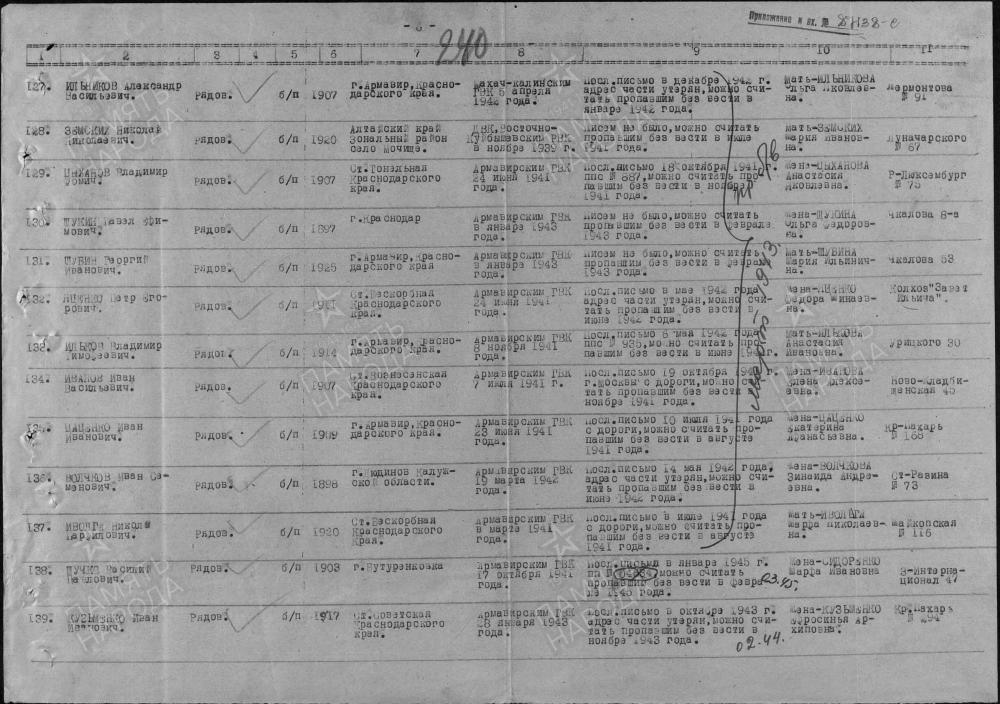 Приложение к вх. № 8438-с
- 8 -
240
1 2 3 4 5 6 7 8 9 10 11
127. ИЛЬНИКОВ Александр Васильевич. Рядов. б/п 1907 г.Армавир,Краснодарского края. Махач-калинским ГВК 5 апреля 1942 года. Посл.письмо в декабре 1942 г. адрес части утерян,можно считать пропавшим без вести в январе 1942 года. Мать-ИЛЬНИКОВА Ольга Яковлевна. Лермонтова № 91
128. ЗЕМСКИХ Николай Николаевич. Рядов. б/п 1920 Алтайский край Зональный район село Мочище. ДВК.Восточно-Куйбышевским РВК в ноябре 1939 г. Писем не было,можно считать пропавшим без вести в июле 1941 года. мать-ЗЕМСКИХ Мария Ивановна. Луначарского № 67
129. ЦЫХАНОВ Владимир Фомич. Рядов. б/п 1907 Ст.Тонельная Краснодарского края. Армавирским ГВК 24 июня 1941 года. Посл.письмо 18 октября 1941 г. ппс № 887,можно считать пропавшим без вести в ноябре 1941 года. Жена-ЦЫХАНОВА Анастасия Яковлевна. Р-Люксембург № 75
130. ЩУКИН Павел Ефимович. Рядов. б/п 1897 г.Краснодар Армавирским ГВК в январе 1943 года. Писем не было,можно считать пропавшим без вести в феврале 1943 года. Жена-ЩУКИНА Ольга Федоровна. Чкалова 8-а
131. ШУБИН Георгий Иванович. Рядов. б/п 1925 г.Армавир,Краснодарского края Армавирским ГВК в январе 1943 года. Писем не было,можно считать пропавшим без вести в феврале 1943 года. Мать-ШУБИНА Мария Ильинична. Чкалова 53
132. ЯЦЕНКО Петр Егорович. Рядов. б/п 1911 Ст.Бескорбная Краснодарского Края. Армавирским ГВК 24 июня 1941 года. Посл.письмо в мае 1942 года адрес части утерян,можно считать пропавшим без вести в июне 1942 года. Жена-ЯЦЕНКО Федора Минаевна. Колхоз"Завет Ильича".
133. ИЛЬКОВ Владимир Тимофеевич. Рядов. б/п 1914 г.Армавир,Краснодарского края. Армавирским ГВК 8 ноября 1941 года. Посл.письмо 6 мая 1942 года ппс № 935,можно считать пропавшим без вести в июне 1942 Мать-ИЛЬКОВА Анастасия Ивановна. Урицкого 30
134. ИВАНОВ Иван Васильевич. Рядов. б/п 1907 Ст.Вознесенская Краснодарского края. Армавирским ГВК 7 июля 1941 г. Посл.письмо 19 октября 1941 г.Москвы с дороги,можно считать пропавшим без вести в ноябре 1941 года. Жена-ИВАНОВА Елена Алексеевна. Ново-Кладбищенская 45
135. ЦАЦЕНКО Иван Иванович. Рядов. б/п 1909 г.Армавир,Краснодарского края. Армавирским ГВК 23 июня 1941 года. Посл.письмо 10 июля 1941 года с дороги,можно считать пропавшим без вести в августе 1941 года. Жена-ЦАЦЕНКО Екатерина Афанасьевна. Кр-Пахарь № 168
136. ВОЛЧКОВ Иван Семенович. Рядов. б/п 1898 г.Людинов Калужской области. Армавирским ГВК 19 марта 1942 года. Посл.письмо 14 мая 1942 года, адрес части утерян,можно считать пропавшим без вести в июне 1942 года. Жена-ВОЛЧКОВА Зинаида Андреевна. Ст-Разина № 73
137. ИВОЛГА Николай Гаврилович. Рядов. б/п 1920 Ст.Бескорбная Краснодарского Края. Армавирским ГВК в марте 1941 года. Посл.письмо в июле 1941 года с дороги,можно считать пропавшим без вести в августе 1941 года. Мать-ИВОЛГА Марфа Николаевна. Майкопская № 116
138. ПУЧКИ Василий Павлович. Рядов. б/п 1903 г.Бутурлиновка Армавирским ГВК 17 октября 1941 года. Посл.письмо в январе 1945 г. пп № можно считать пропавшим без вести в феврале 1945 года. 03.45. Жена-СИДОРЕНКО Марфа Ивановна 3-Интернационал 47
139. КУЗЬМЕНКО Иван Иванович. Рядов. б/п 1917 Ст.Советская Краснодарского края. Армавирским ГВК 28 января 1943 года. Посл.письмо в октябре 1943 г. адрес части утерян,можно считать пропавшим без вести в ноябре 1943 года. 02.44. Жена-КУЗЬМЕНКО Ефросинья Архиповна. Кр.Пахарь № 294
ПАМЯТЬ НАРОДА